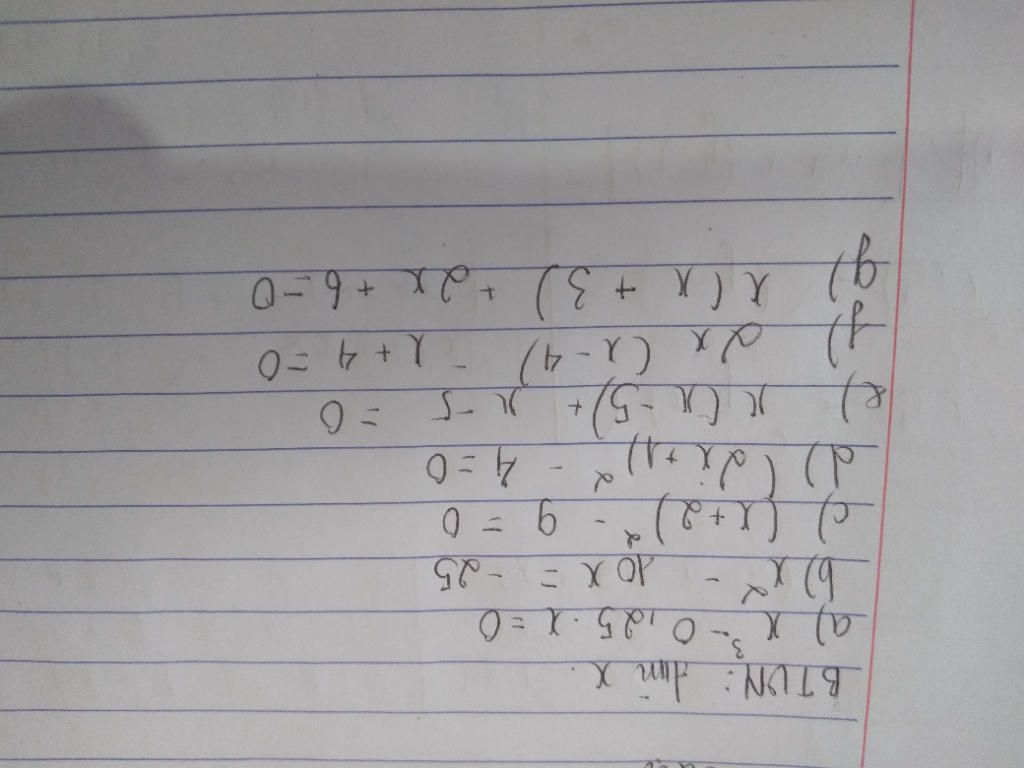 BTVN: tìm x.
a) x³ - 0,25 . x = 0
b) x² - 10x = - 25
c) (x + 2)² - 9 = 0
d) (2x + 1)² - 4 = 0
e) x (x - 5) + x - 5 = 0
f) 2x (x - 4) - x + 4 = 0
g) x (x + 3) + 2x + 6 = 0